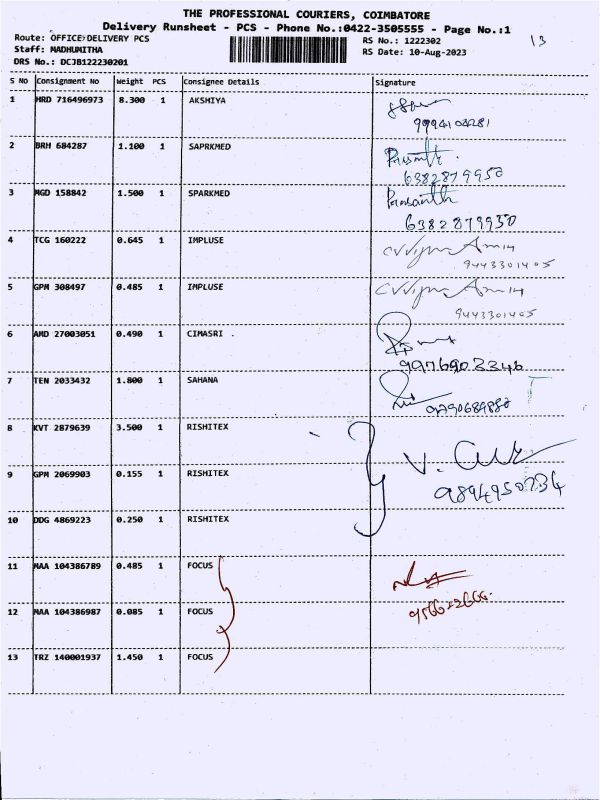 THE PROFESSIONAL COURIERS, COIMBATORE
Delivery Runsheet - PCS - Phone No.:0422-3505555 - Page No.:1
Route: OFFICE>DELIVERY PCS RS No.: 1222302 13
Staff: MADHUMITHA RS Date: 10-Aug-2023
DRS No.: DCJB122230201
S NO Consignment No Weight PCS Consignee Details Signature
1 HRD 716496973 8.300 1 AKSHIYA
2 BRH 684287 1.100 1 SAPRKMED
6382879950
3 MGD 158842 1.500 1 SPARKMED Prasanth
6382879950
4 TCG 160222 0.645 1 IMPLUSE
9443301405
5 GPM 308497 0.485 1 IMPLUSE
9443301405
6 AMD 27003051 0.490 1 CIMASRI
9976903346
7 TEN 2033432 1.800 1 SAHANA
8 KVT 2879639 3.500 1 RISHITEX
9 GPM 2069903 0.155 1 RISHITEX
9894950234
10 DDG 4869223 0.250 1 RISHITEX
11 MAA 104386789 0.485 1 FOCUS
12 MAA 104386987 0.085 1 FOCUS
13 TRZ 140001937 1.450 1 FOCUS